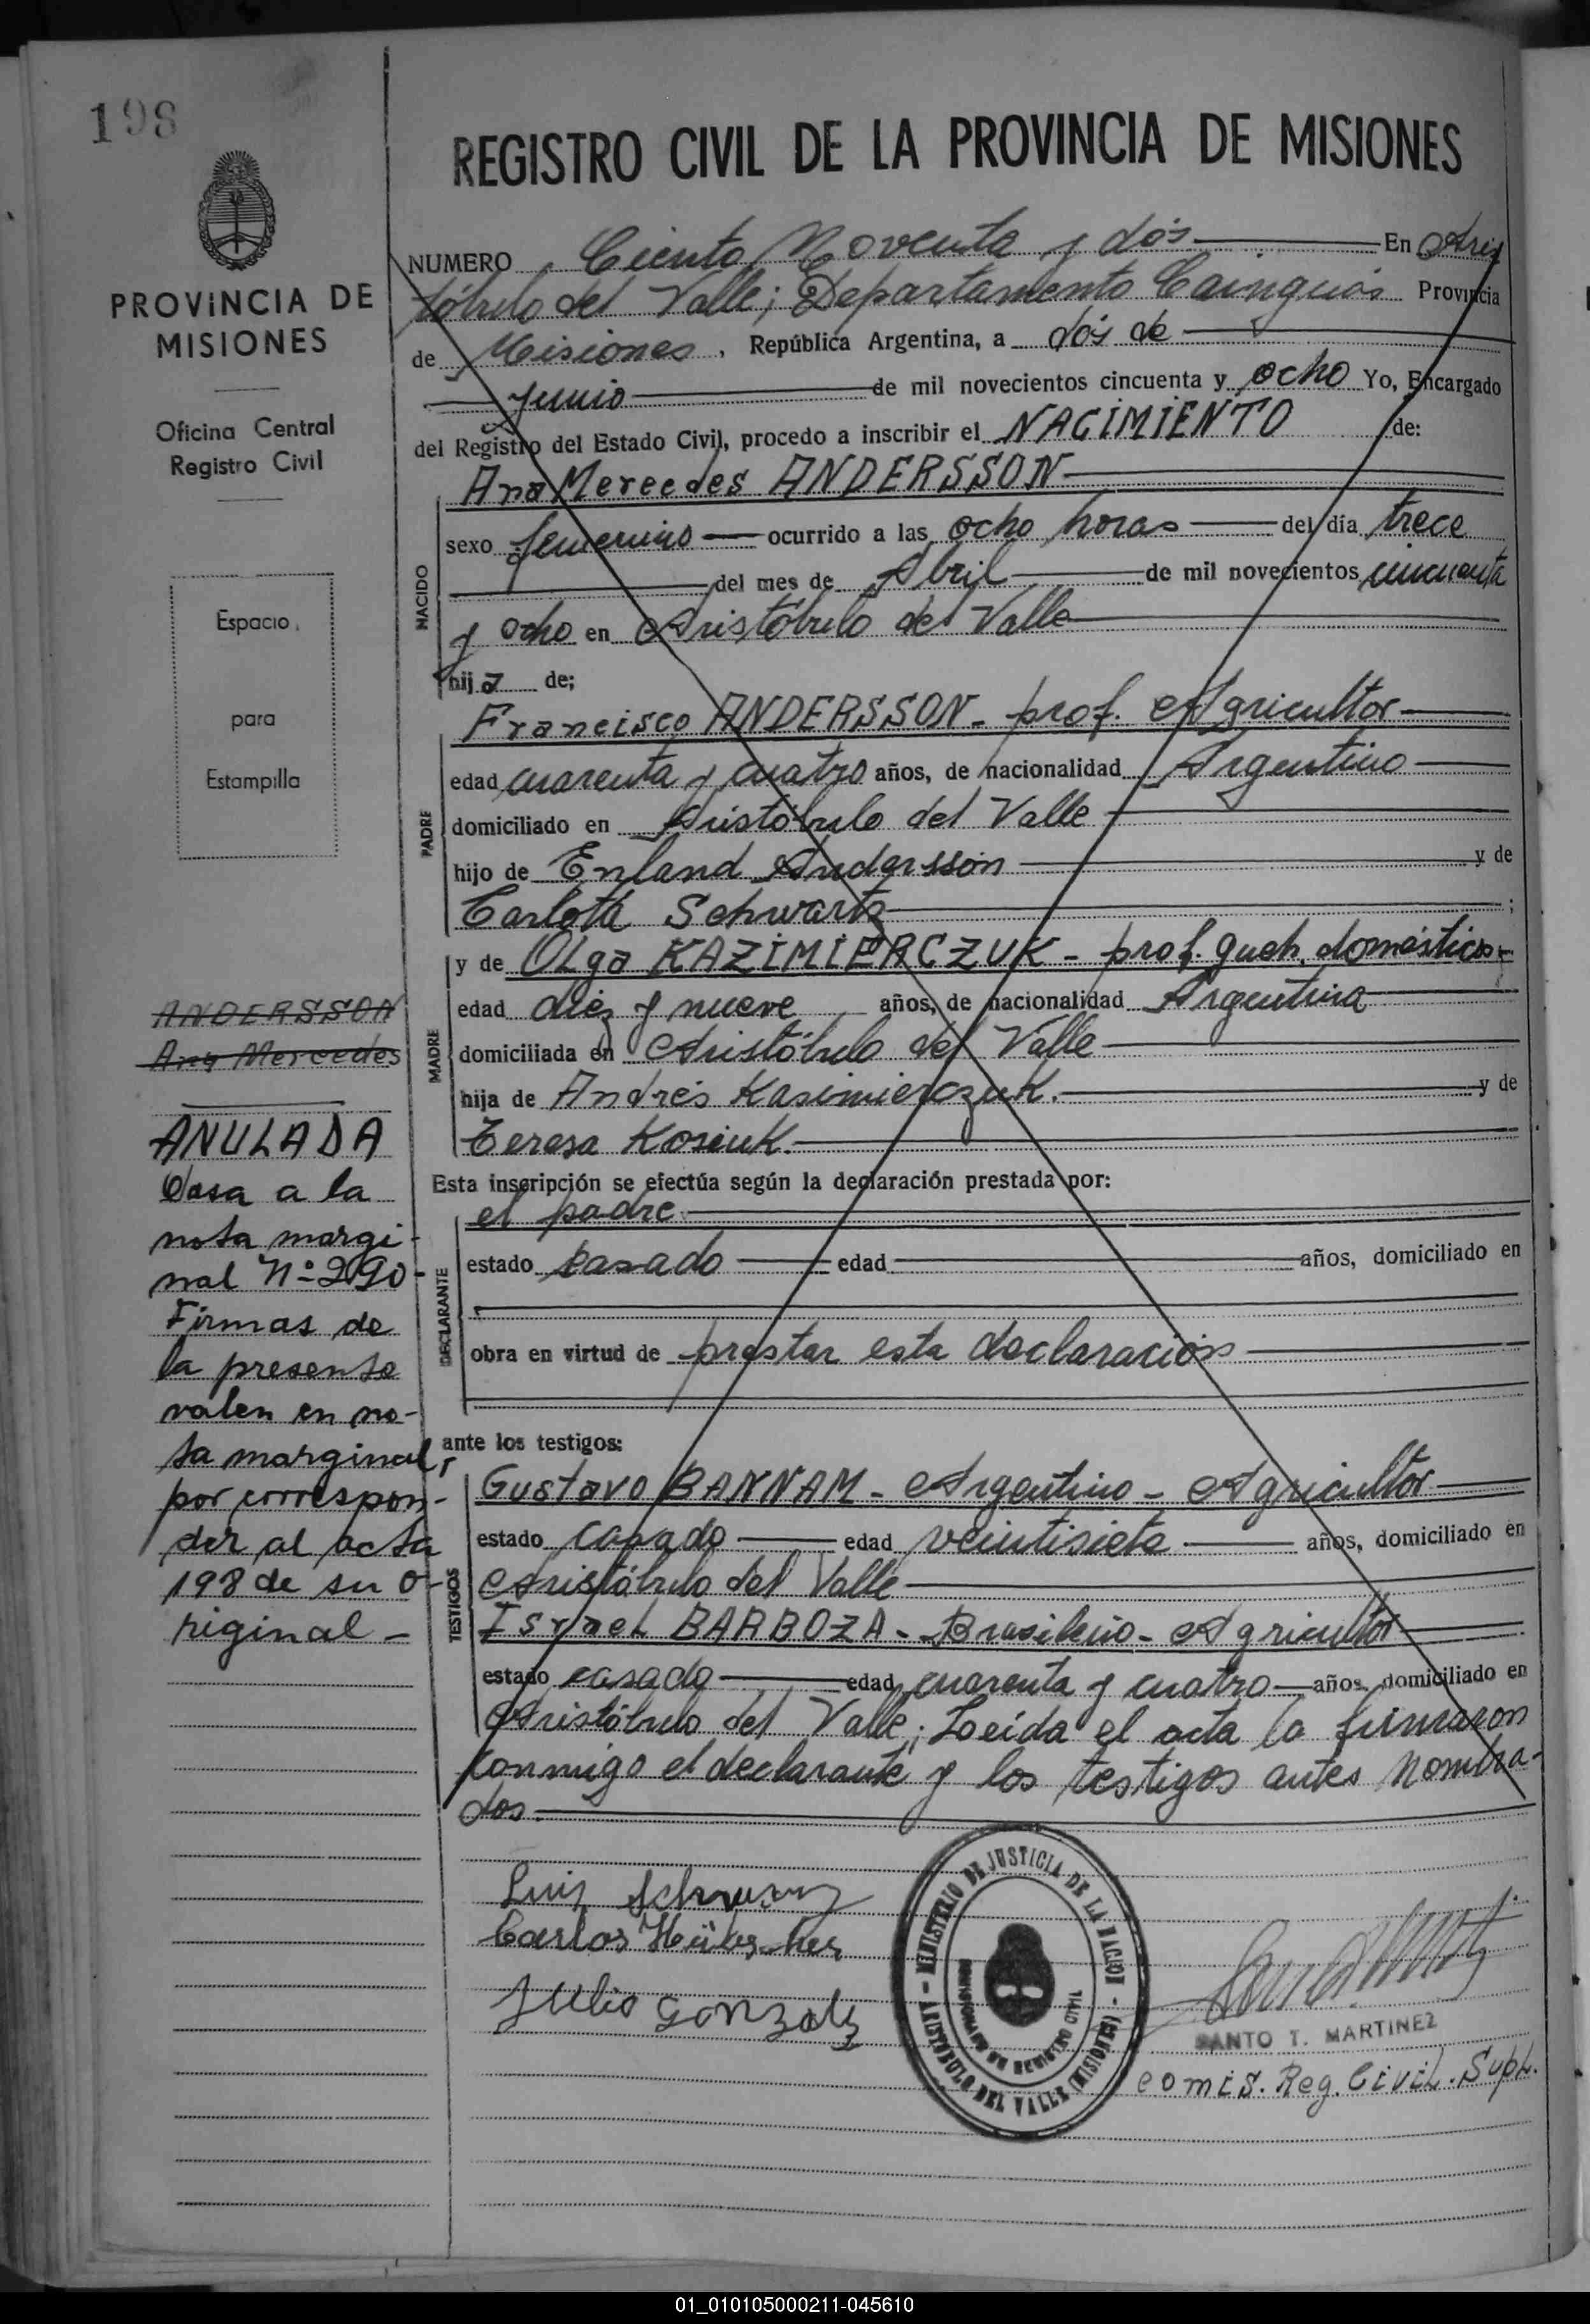 198
REGISTRO CIVIL DE LA PROVINCIA DE MISIONES
PROVINCIA DE
MISIONES
Oficina Central
Registro Civil
Espacio
para
Estampilla
NUMERO Ciento Noventa y dós En Aris
tóbulo del Valle; Departamento Cainguás Provincia
de Misiones, República Argentina, a dós de
Junio de mil novecientos cincuenta y ocho Yo, Encargado
del Registro del Estado Civil, procedo a inscribir el NACIMIENTO de:
NACIDO
Ana Mercedes ANDERSSON
sexo femenino ocurrido a las ocho horas del día trece
del mes de Abril de mil novecientos cincuenta
y ocho en Aristóbulo del Valle
hija de;
PADRE
Francisco ANDERSSON - prof. Agricultor
edad cuarenta y cuatro años, de nacionalidad Argentino
domiciliado en Aristóbulo del Valle
hijo de Enland Andersson y de
Carlota Schwartz ;
MADRE
y de Olga KAZIMIERCZUK - prof. queh. domésticos
edad diez y nueve años, de nacionalidad Argentina
domiciliada en Aristóbulo del Valle
hija de Andrés Kasimierczuk. y de
Teresa Kosiuk.
Esta inscripción se efectúa según la declaración prestada por:
DECLARANTE
el padre
estado casado edad años, domiciliado en
obra en virtud de prestar esta declaración
ante los testigos:
TESTIGOS
Gustavo BANNAM - Argentino - Agricultor
estado casado edad veintisiete años, domiciliado en
Aristóbulo del Valle
Israel BARBOZA - Brasileño - Agricultor
estado casado edad cuarenta y cuatro años, domiciliado en
Aristóbulo del Valle; Leída el acta la firmaron
conmigo el declarante y los testigos antes nombra-
dos.
ANDERSSON
Ana Mercedes
ANULADA
Pasa a la
nota margi-
nal Nº 290-
Firmas de
la presente
valen en no-
ta marginal,
por correspon-
der al acta
198 de su o-
riginal -
Luis
Carlos Hübscher
Julio Gonzalz
MINISTERIO DE JUSTICIA DE LA NACION - ARISTOBULO DEL VALLE (MISIONES) -
REGISTRO CIVIL
SANTO T. MARTINEZ
comis. Reg. Civil. Supl.
01_010105000211-045610